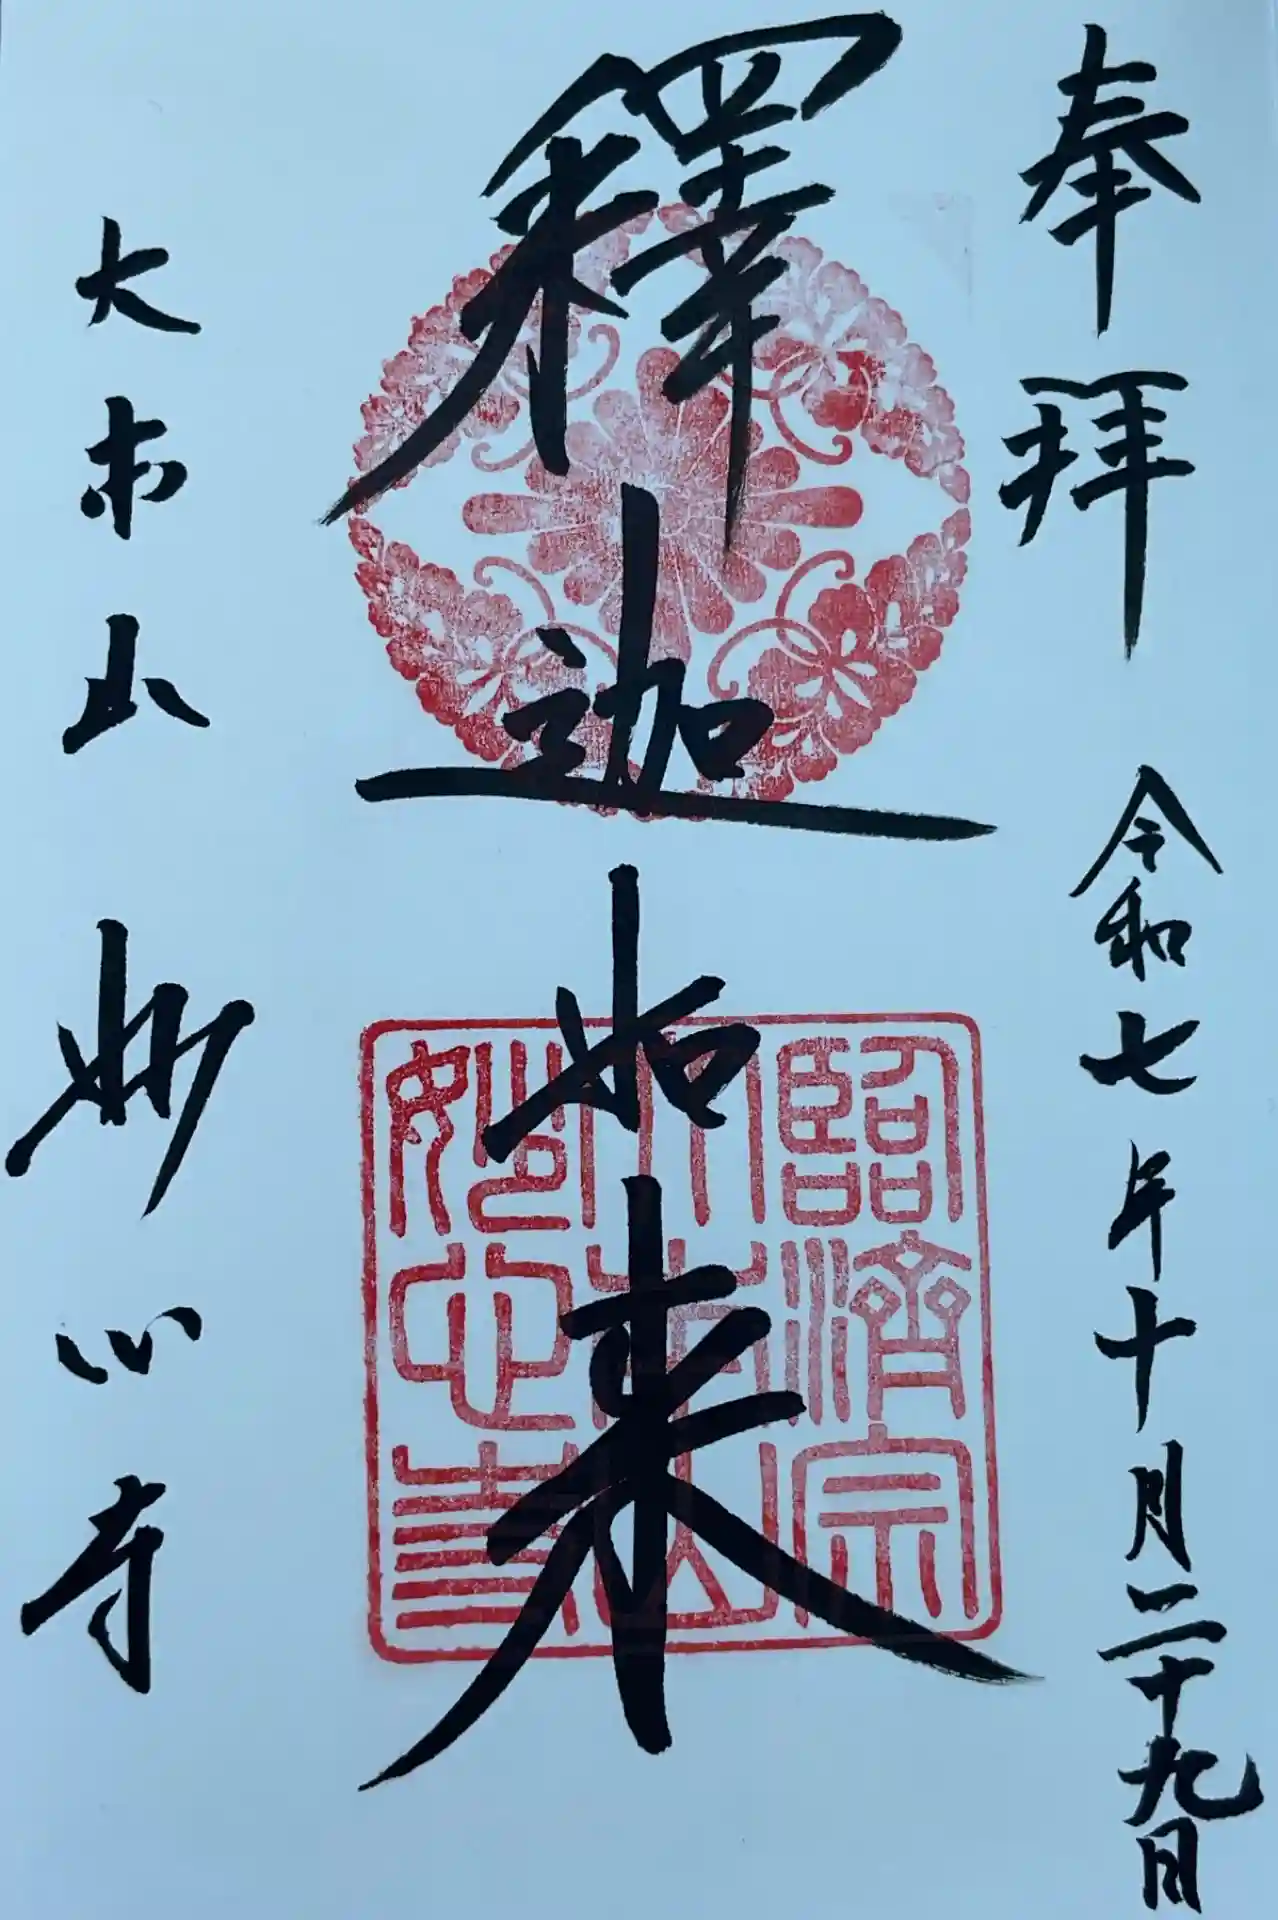 奉拝 令和七年十月二十九日
釋迦如来
臨済宗
大本山
妙心寺
大本山 妙心寺